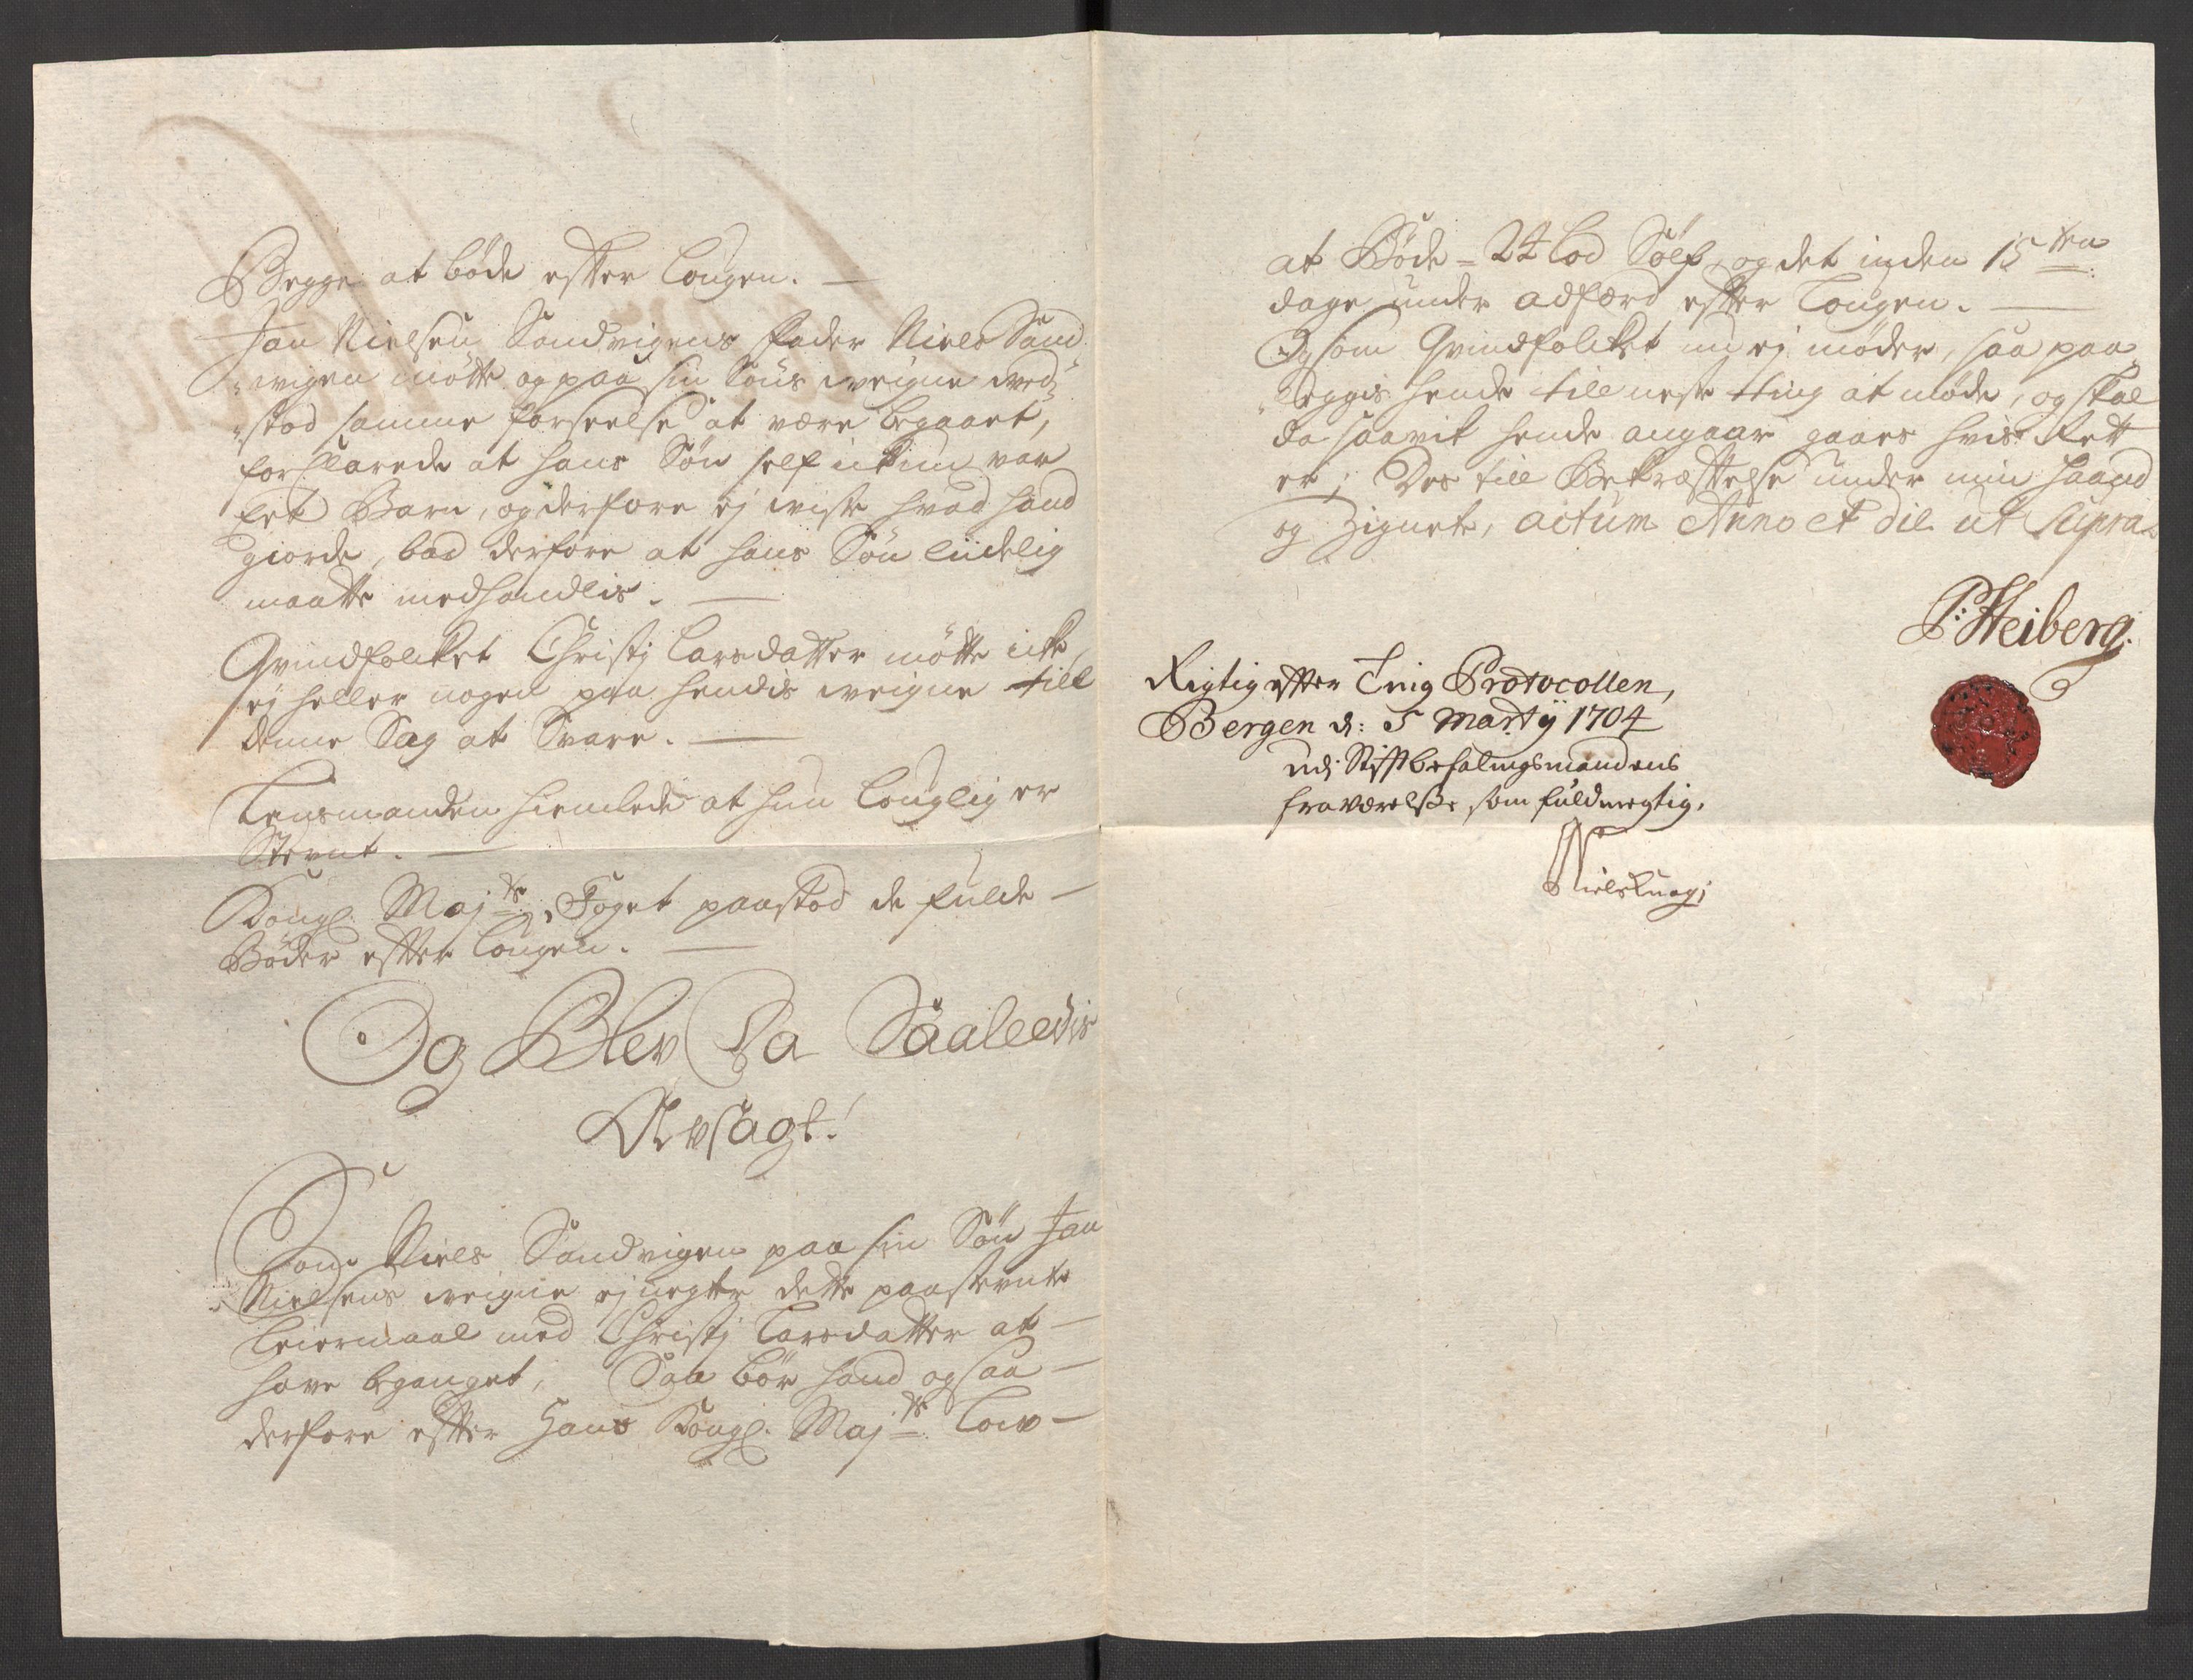 Begge at bøde efter Lougen. —
Jan Nielsen Sandvigens fader Niels Sand
"wigen møtte og paa sin Søns weigne wed"
"stod samme forseelse at være begaaet,
forklarede at hans Søn self ickun var
et Barn, og derfore ej wiste hvad hand
giorde, bad derfore at hans Søn liidelig
maatte medhandlis. —
Qvindfolcket Christj Larsdatter møtte icke,
ej heller nogen paa hendis weigne till
denne Sag at Svare. —
Lensmanden hiemlede at hun Louglig er
Stevnt. —
Kongl. Maj.ts Foget paastod de fulde —
Bøder efter Lougen. —
Og Blev Da Saaleedis
Avsagt!
Som Niels Sandvigen paa sin Søn Jan
Nielsens weigne ej negter dette paastevnte
Leiermaal med Christj Larsdatter at —
have begaaget, Saa bør hand og saa —
derfore efter Hans Kongl. Maj.ts Low —
at Bøde = 24 Lod Sølf, og det inden 15ten
dage under adfærd efter Lougen. —
Og som Qvindfolcket nu ej møder, saa paa"
"leggis hende till neste ting at møde, og skal
da saavit hende angaar gaaes hvis Rett
er; Des till Bekræfftelse under min haand
og Zignete, actum Anno et die ut supra.
P: Heiberg.
Rigtig efter Ting Protocollen,
Bergen d: 5 Martij 1704
udj Stifftbefalingsmandens
fraværelse som fuldmegtig.
Niels Knag;